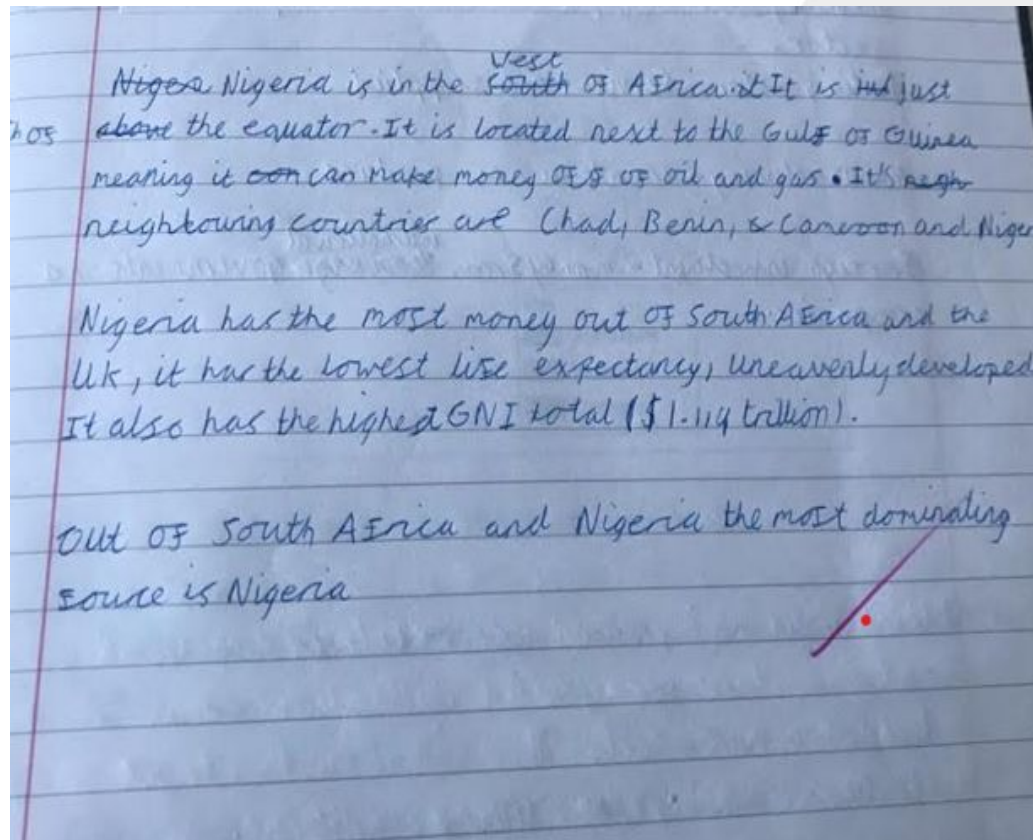 Nigera Nigeria is in the south West of Africa it It is just
h of above the equator. It is located next to the Gulf of Guinea
meaning it can can make money off of oil and gas. It's neigh
neighbouring countries are Chad, Benin, & Cameroon and Niger
Nigeria has the most money out of South Africa and the
UK, it has the lowest life expectancy, uneavenly developed
It also has the highest GNI total ($1.114 trillion).
Out of South Africa and Nigeria the most dominating
source is Nigeria